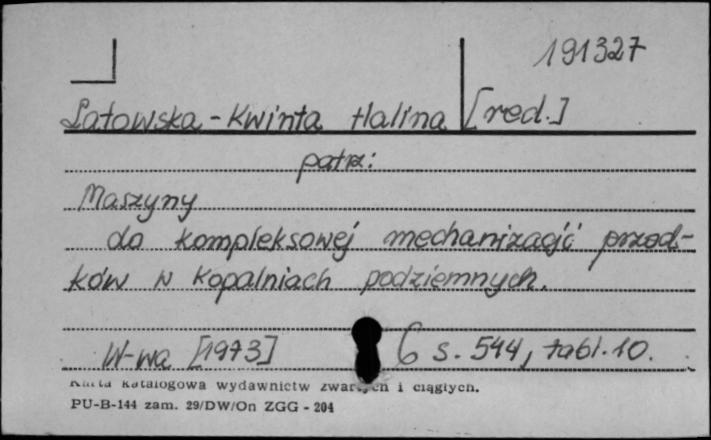 191327
Latowska-Kwinta Halina [red.]
patrz:
Maszyny
do kompleksowej mechanizacji przod-
ków w kopalniach podziemnych.
W-wa [1973] s. 544, tabl. 10.
Karta katalogowa wydawnictw zwartych i ciągłych.
PU-B-144 zam. 29/DW/On ZGG - 204